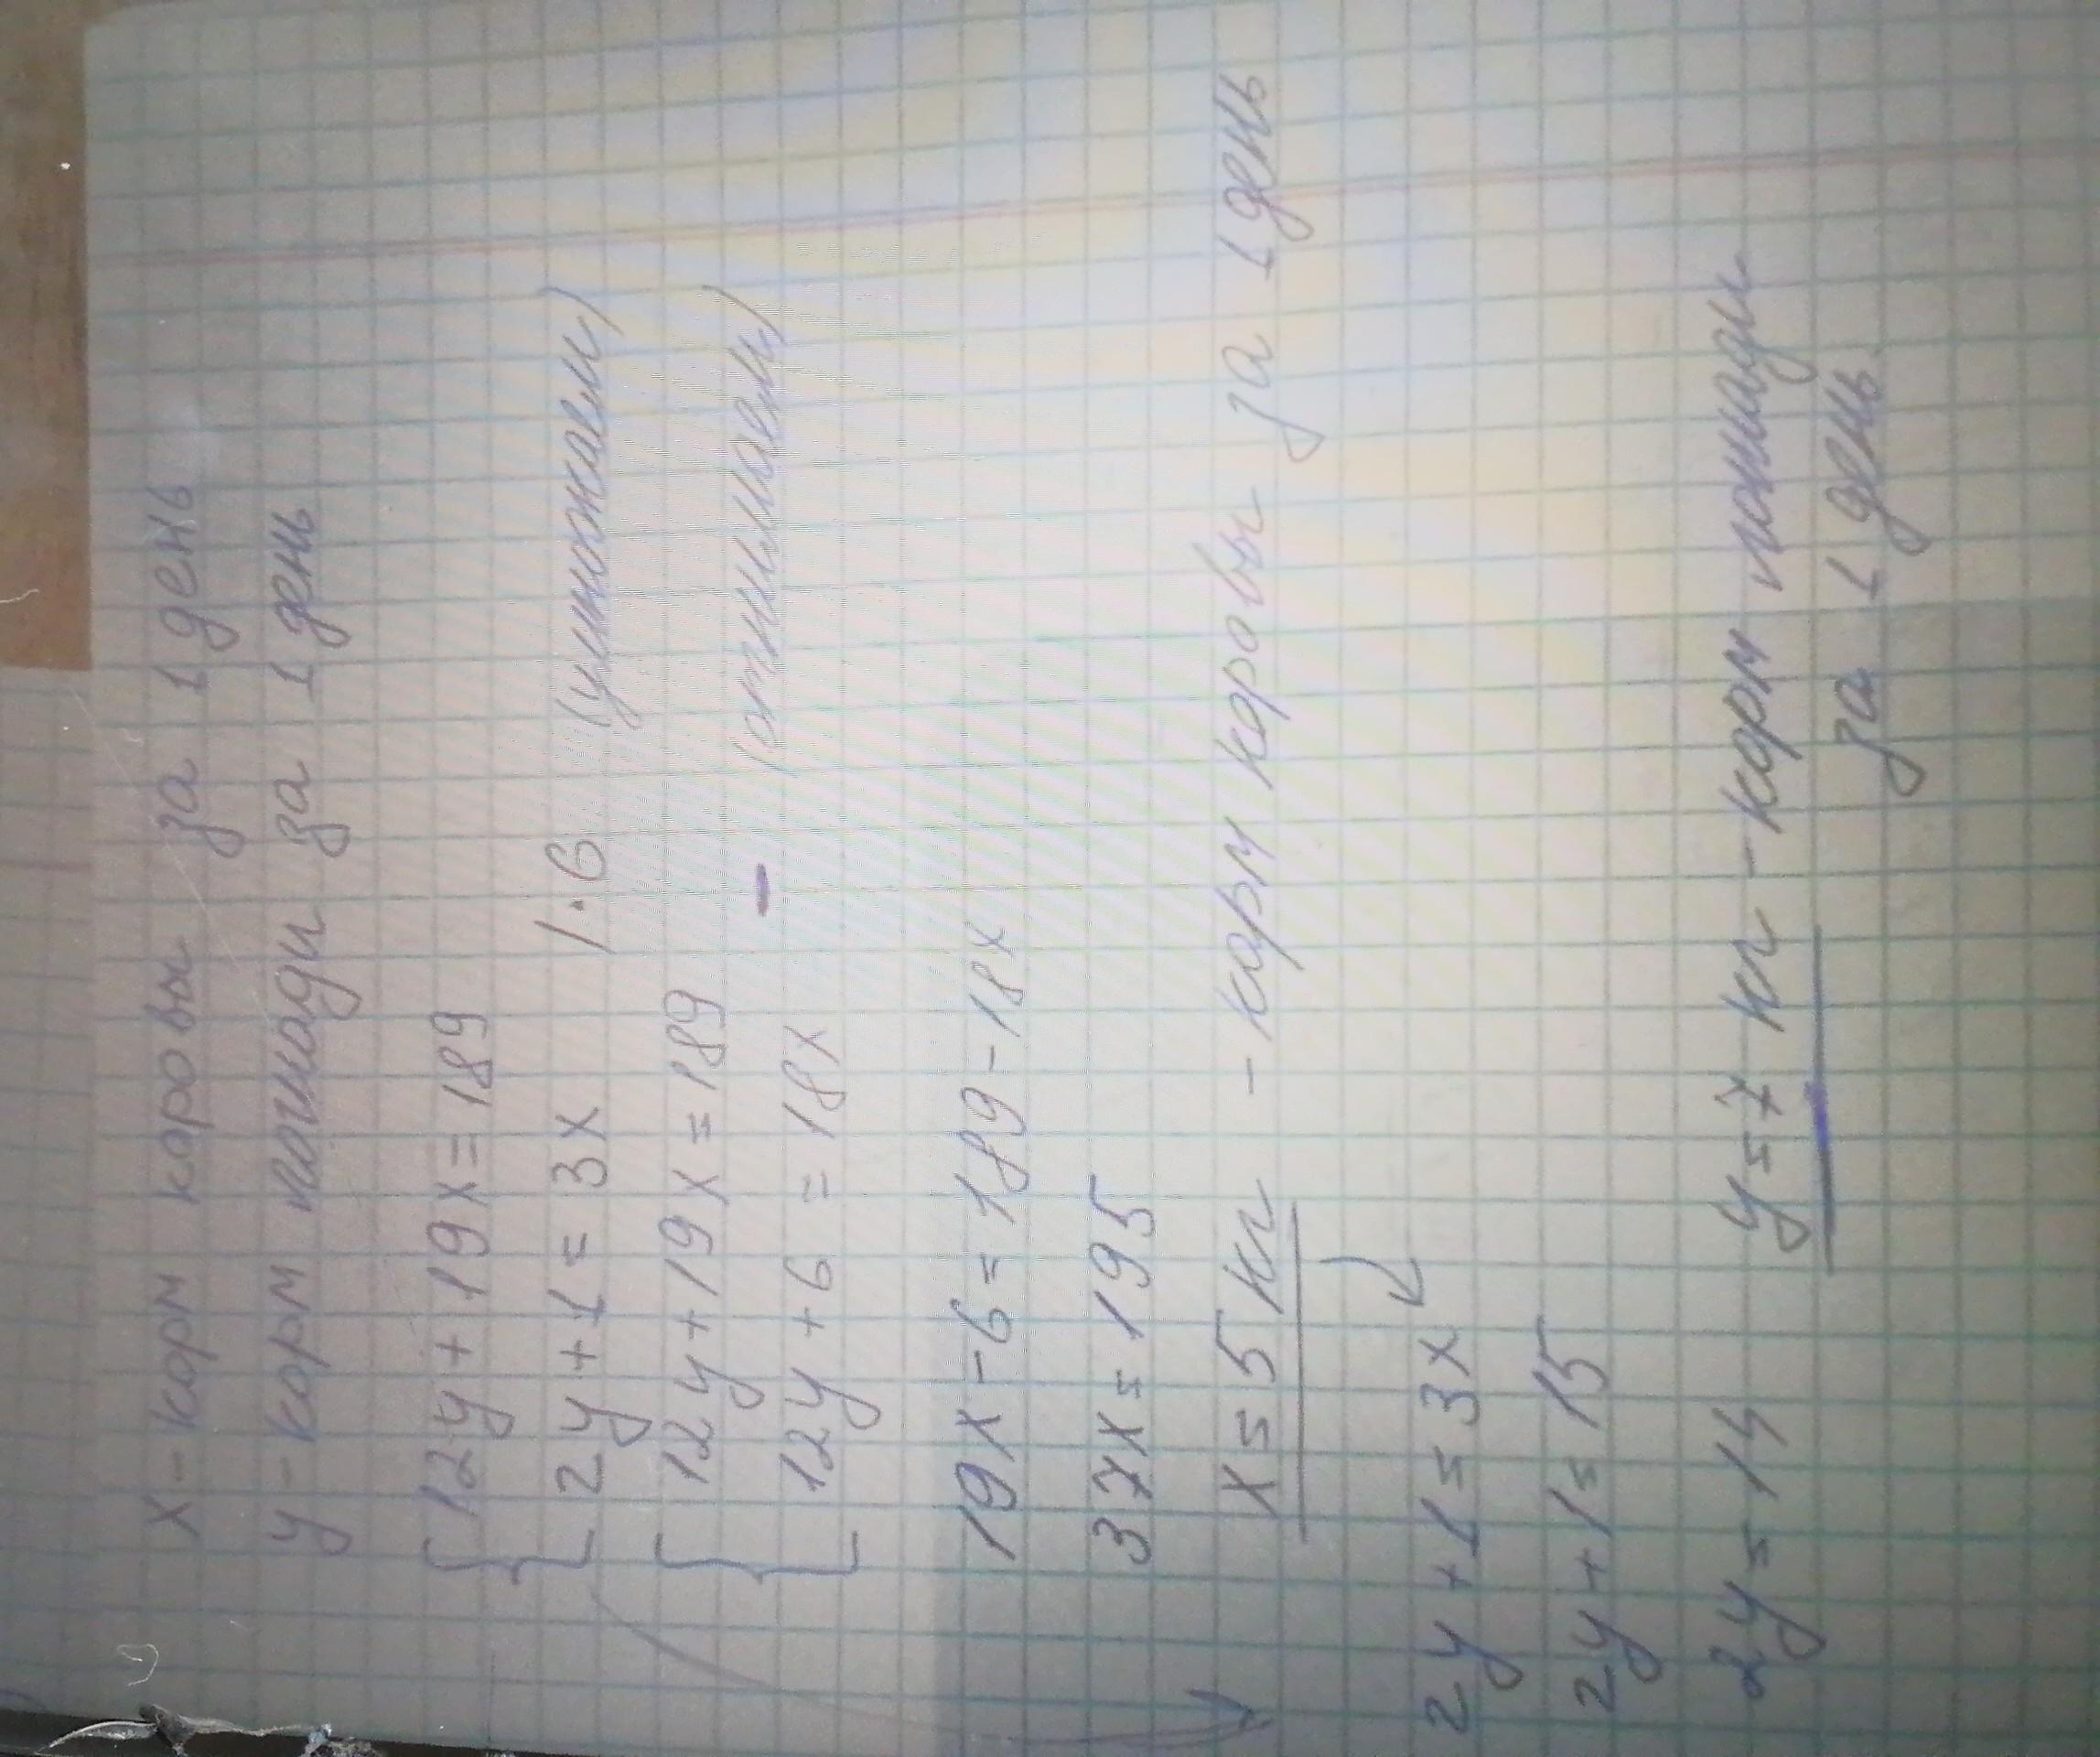 x - корм коровы за 1 день
y - корм лошади за 1 день
{ 12y + 19x = 189
2y + 1 = 3x | · 6 (умножаем)
{ 12y + 19x = 189
12y + 6 = 18x - (отнимаем)
19x - 6 = 189 - 18x
37x = 195
x = 5 кг - корм коровы за 1 день
2y + 1 = 3x
2y + 1 = 15
2y = 14 y = 7 кг - корм лошади
за 1 день